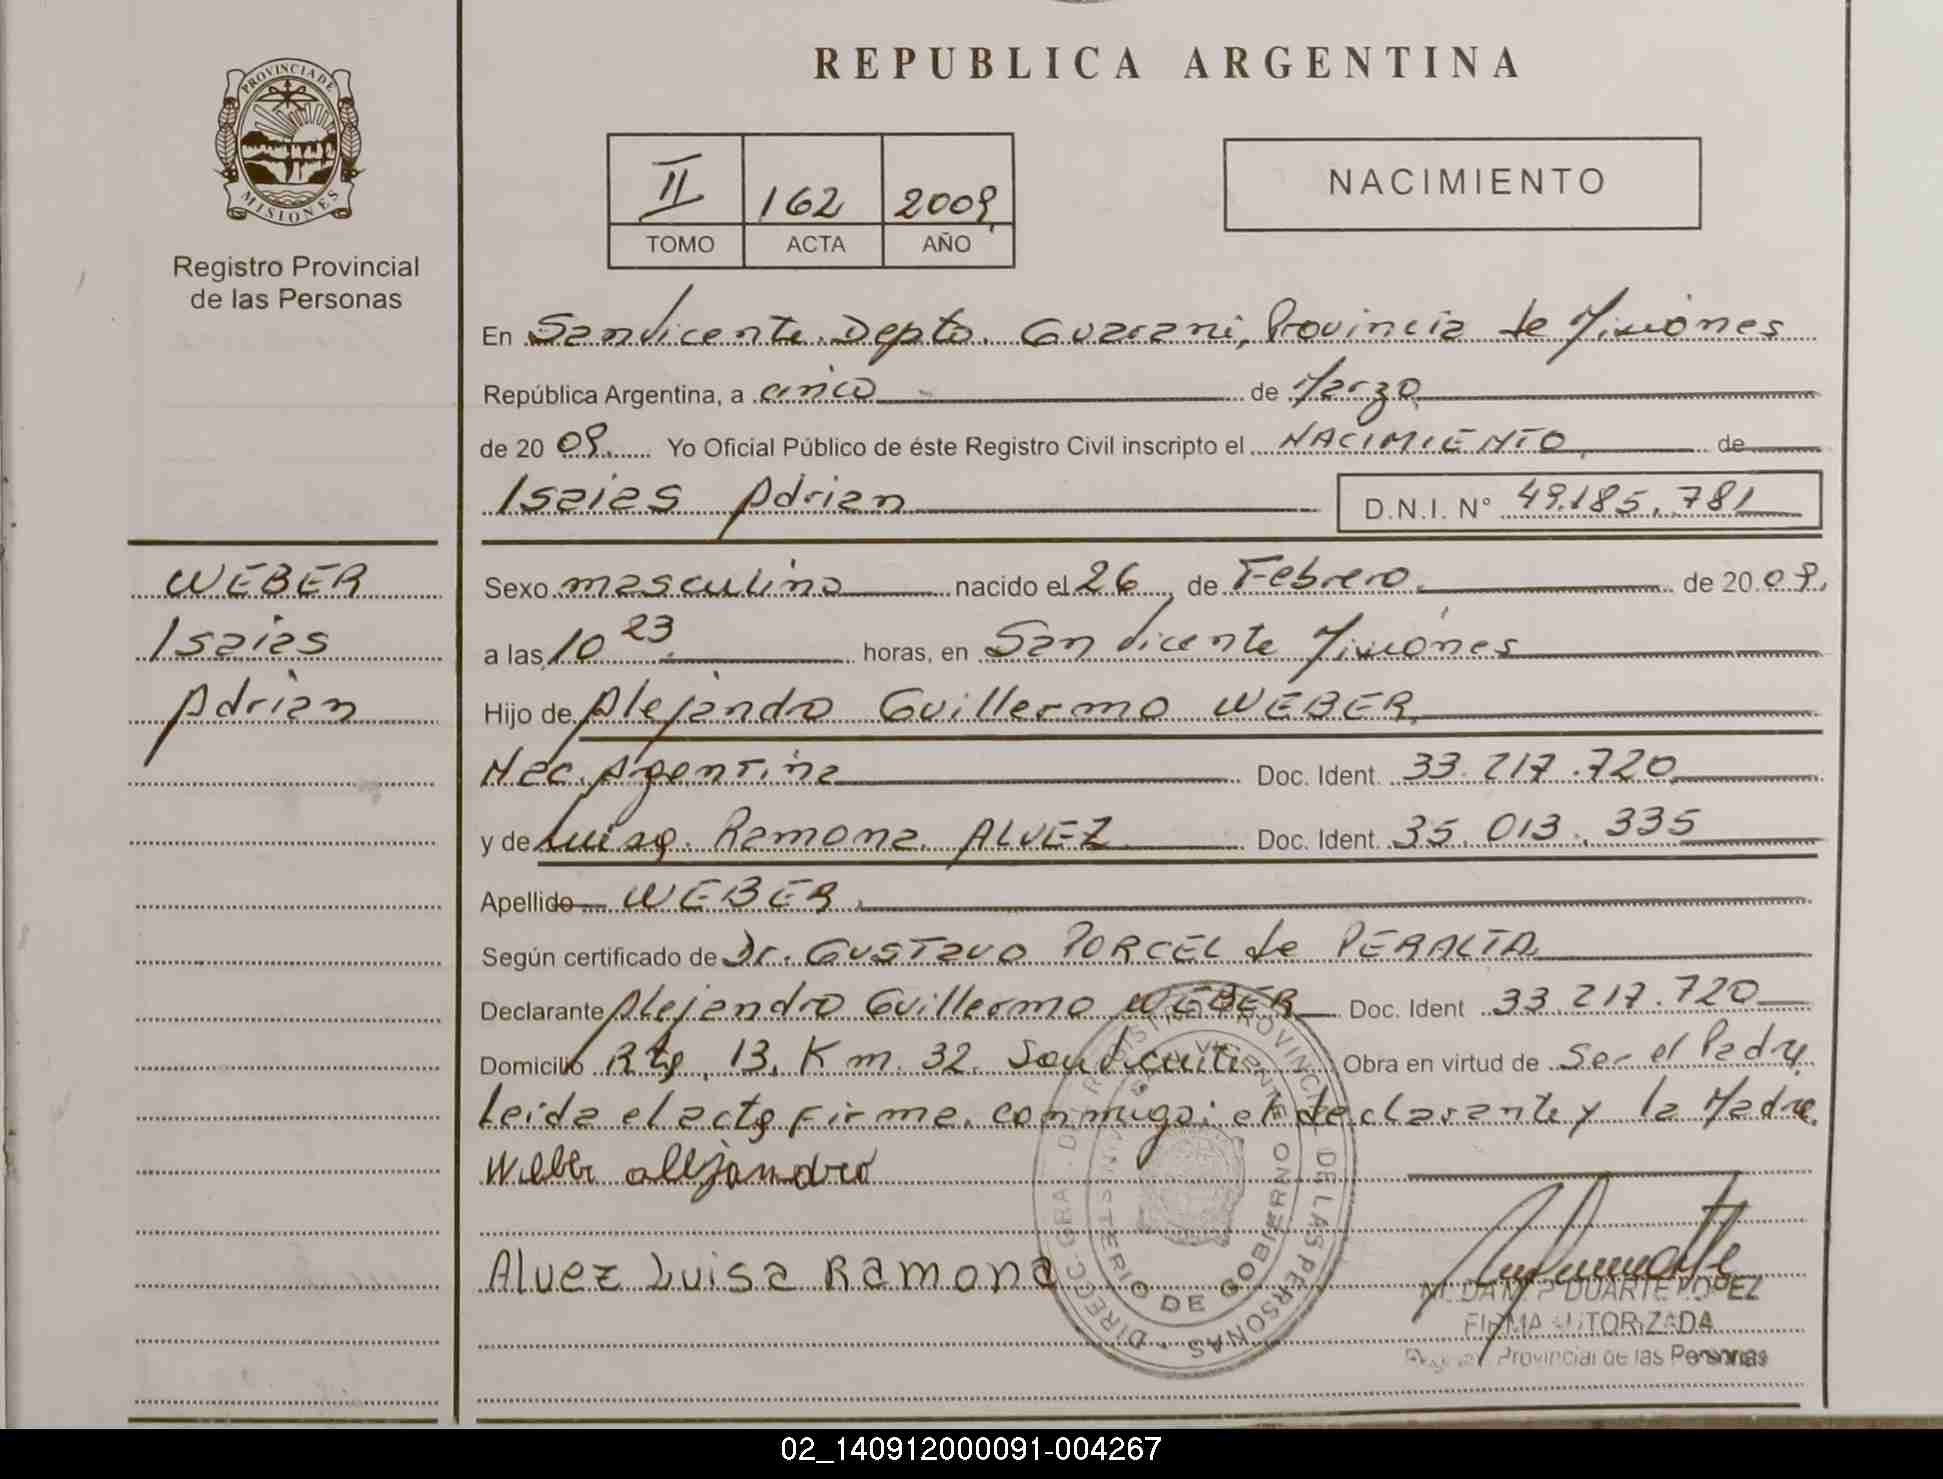 REPUBLICA ARGENTINA
PROVINCIA DE
MISIONES
Registro Provincial
de las Personas
II 162 2009
TOMO ACTA AÑO
NACIMIENTO
En San Vicente. Depto. Guarani, Provincia de Misiones
República Argentina, a cinco de Marzo
de 20 09. Yo Oficial Público de éste Registro Civil inscripto el NACIMIENTO de
Isaias Adrian D.N.I. N° 49.185.781
WEBER
Isaias
Adrian
Sexo masculino nacido el 26 de Febrero de 20 09.
a las 10 23 horas, en San Vicente Misiones
Hijo de Alejandro Guillermo WEBER
Nac. Argentina Doc. Ident. 33.217.720
y de Luisa. Ramona. ALVEZ Doc. Ident. 35.013.335
Apellido WEBER.
Según certificado de Dr. GUSTavo PORCEL de PERALTA
Declarante Alejandro Guillermo WEBER Doc. Ident 33.217.720
Domicilio Rta. 13. Km. 32. San Vicente Obra en virtud de Ser el Padre
Leida el acta firma. conmigo: el declarante y la Madre.
Weber Alejandro
Alvez Luisa Ramona
DIRECC. GRAL. DEL REGISTRO PROVINCIAL DE LAS PERSONAS
SAN VICENTE
MINISTERIO DE GOBIERNO
DUARTE LOPEZ
FIRMA AUTORIZADA
Registro Provincial de las Personas
02_140912000091-004267